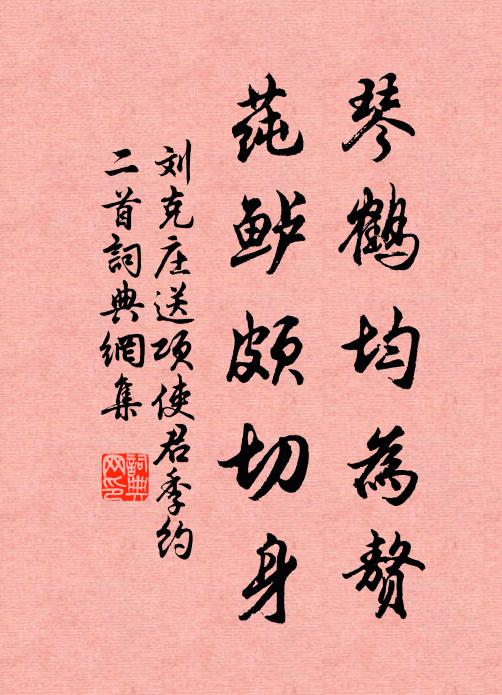 琴鹤均为赘
莼鲈颇切身
刘克庄送项使君季约
二首词典網集
詞典網印